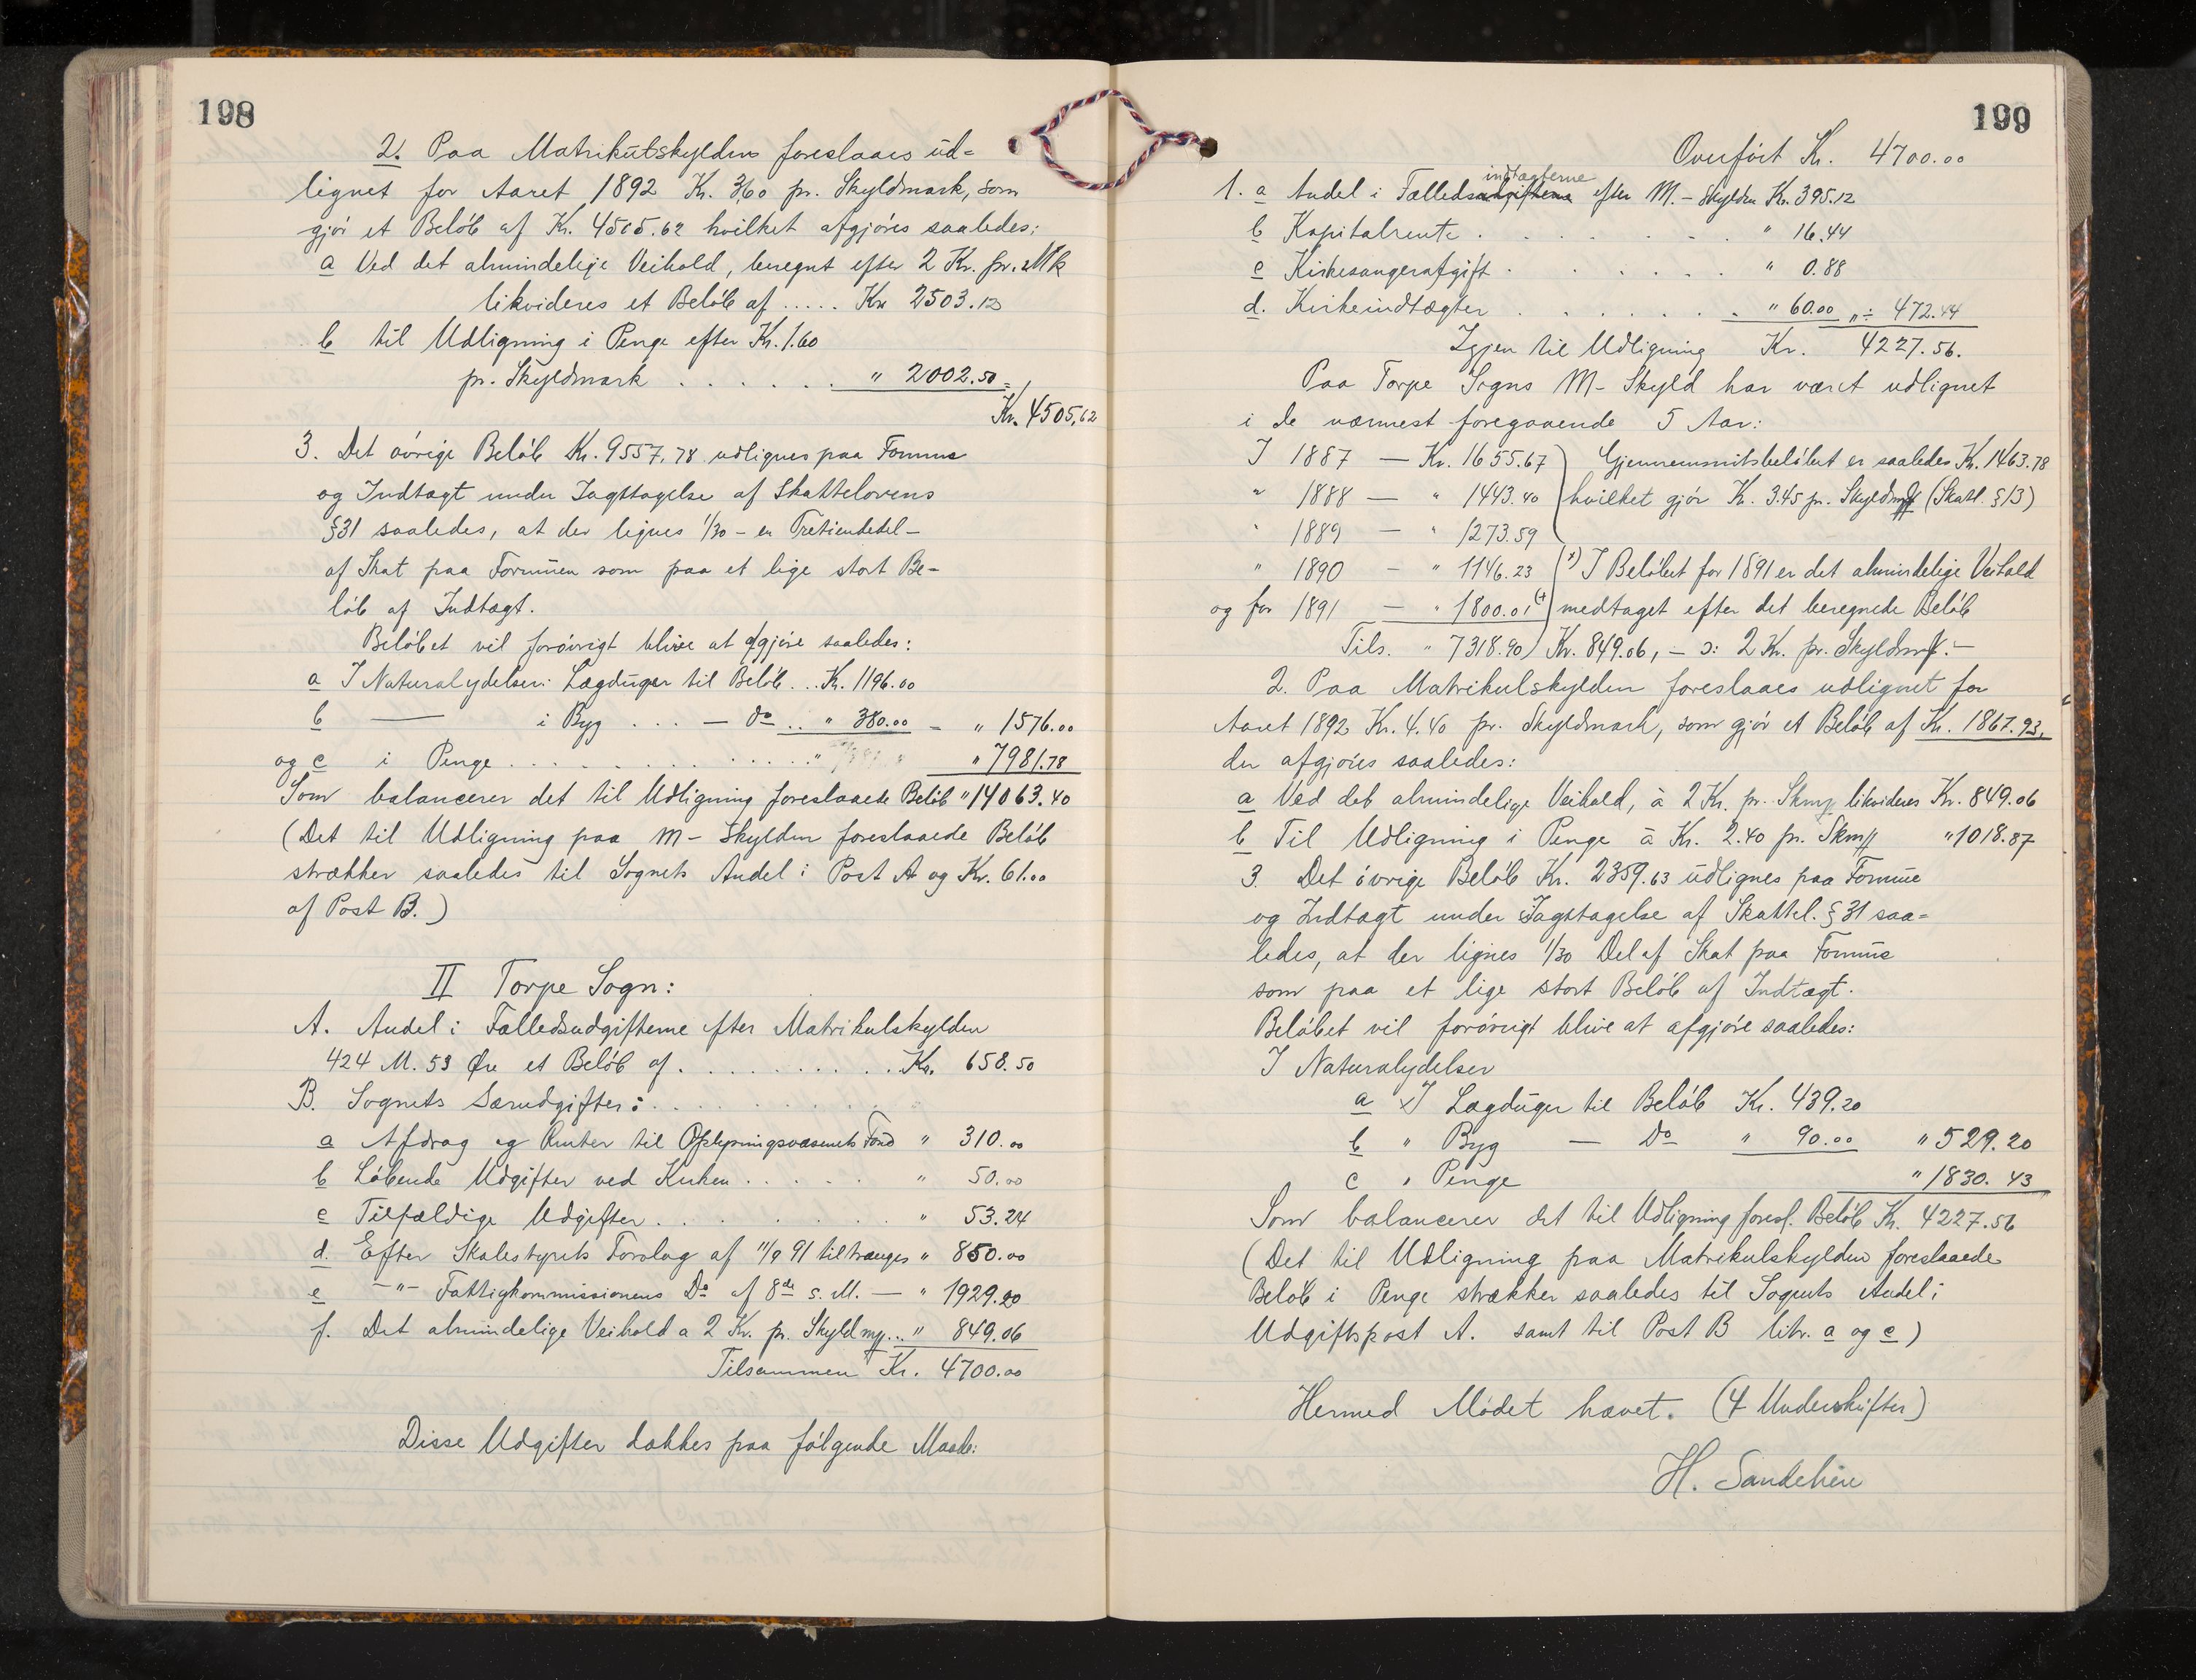 198
2. Paa Matrikulskylden foreslaaes ud=
lignet for Aaret 1892 Kr. 3,60 pr. Skyldmark, som
gjör et Belöb af Kr. 4505.62 hvilket afgjöres saaledes:
a Ved det almindelige Veihold, beregnet efter 2 Kr. pr. Mk
likvideres et Belöb af ..... Kr 2503.12
b til Udligning i Penge efter Kr. 1.60
pr. Skyldmark . . . . . . " 2002.50 =
Kr. 4505,62
3. Det övrige Belöb Kr. 9557,78 udlignes paa Formue
og Indtægt under Iagttagelse af Skattelovens
§31 saaledes, at der lignes 1/30 - en Tretiendedel -
af Skat paa Formuen som paa et lige stort Be-
löb af Indtægt.
Belöbet vil forövrigt blive at afgjöre saaledes:
a I Naturalydelser: Lægduger til Belöb ... Kr. 1196.00
b —— i Byg . . . — do .. " 380.00 = " 1576.00
og c i Penge . . . . . . . . . . . . . . " 7981.78
Som balancerer det til Udligning foreslaaede Belöb " 14063.40
(Det til Udligning paa M- Skylden foreslaaede Belöb
strækker saaledes til Sognets Andel i Post A og Kr. 61.00
af Post B.)
II Torpe Sogn:
A. Andel i Fælledsudgifterne efter Matrikulskylden
424 M. 53 Öre et Belöb af . . . . . . . . . . Kr. 658.50
B. Sognets Særudgifter: . . . . . . . .
a Afdrag og Renter til Oplysningsvæsenets Fond " 310.00
b Löbende Udgifter ved Kirken . . . . . " 50.00
c Tilfældige Udgifter . . . . . . . . " 53.24
d. Efter Skolestyrets Forslag af 11/9 91 tiltrænges " 850.00
e -"- Fattigkommissionens Do af 8de s. M. — " 1929.20
f. Det almindelige Veihold a 2 Kr. pr. Skyldmk... " 849.06
Tilsammen Kr. 4700.00
Disse Udgifter dækkes paa fölgende Maade:
199
Overfört Kr. 4700.00
indtægterne
1. a Andel i Fælledsudgifterne efter M. - Skylden Kr. 395.12
b Kapitalrente . . . . . . . . " 16.44
c Kirkesangerafgift . . . . . . . " 0.88
d. Kirkeindtægter . . . . . . . " 60.00 " ÷ 472.44
Igjen til Udligning Kr. 4227.56.
Paa Torpe Sogns M- Skyld har været udlignet
i de nærmest foregaaende 5 Aar:
I 1887 — Kr. 1655.67 ) Gjennemsnitsbelöbet er saaledes Kr. 1463.78
" 1888 — " 1443.40 hvilket gjör Kr. 3.45 pr. Skyldmk (Skattl. §13)
" 1889 — " 1273.59
" 1890 — " 1146.23 (+) I Belöbet for 1891 er det almindelige Veihold
og for 1891 — " 1800.01 (+ medtaget efter det beregnede Belöb
Tils. " 7318.90 ) Kr. 849.06, - ɔ: 2 Kr. pr. Skyldmk. -
2. Paa Matrikulskylden foreslaaes udlignet for
Aaret 1892 Kr. 4.40 pr. Skyldmark, som gjör et Belöb af Kr. 1867.93,
der afgjöres saaledes:
a Ved det almindelige Veihold, à 2 Kr. pr. Skmk likvideres Kr. 849.06
b Til Udligning i Penge à Kr. 2.40 pr. Skmk " 1018.87
3. Det övrige Belöb Kr. 2359.63 udlignes paa Formue
og Indtægt under Iagttagelse af Skattel. § 31 saa=
ledes, at der lignes 1/30 Del af Skat paa Formue
som paa et lige stort Belöb af Indtægt.
Belöbet vil forövrigt blive at afgjöre saaledes:
I Naturalydelser
a I Lægduger til Belöb Kr. 439.20
b " Byg — Do " 90.00 " 529.20
c " Penge " 1830.43
Som balancerer det til Udligning foresl. Belöb Kr. 4227.56
(Det til Udligning paa Matrikulskylden foreslaaede
Belöb i Penge strækker saaledes til Sognets Andel i
Udgiftspost A. samt til Post B litr. a og c)
Hermed Mödet hævet. (4 Underskrifter)
H. Sandehin